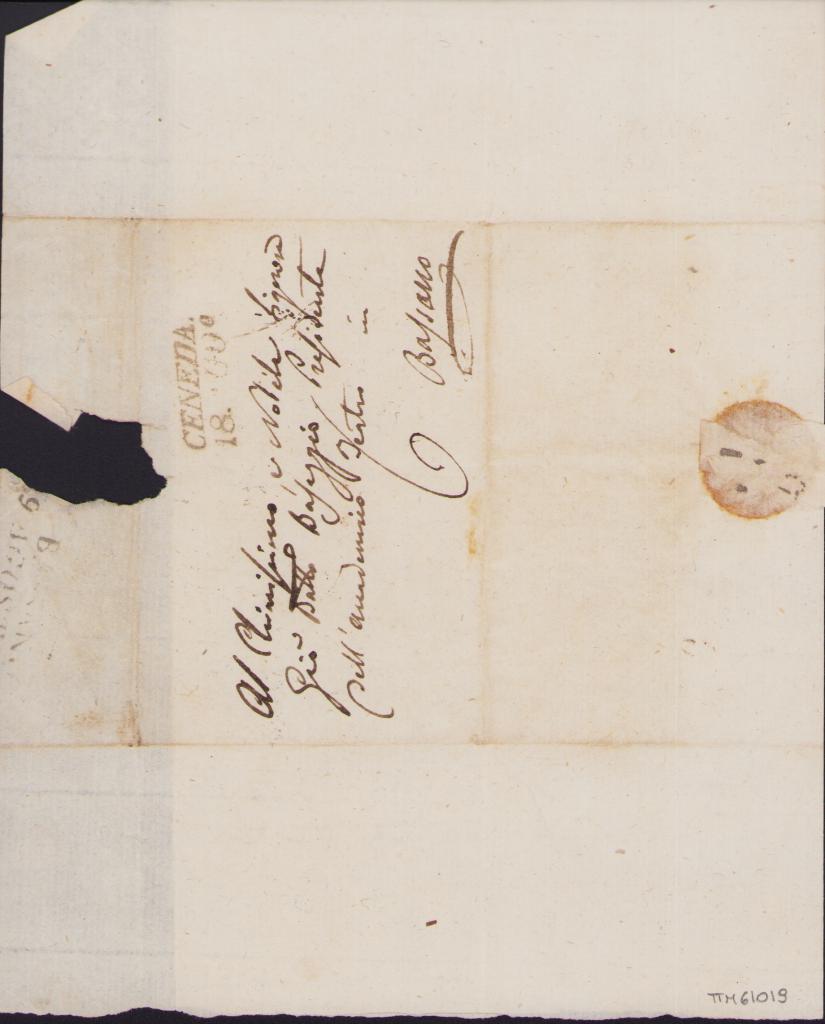 CENEDA.
18.
Al Chiarissimo e Nobile Signore
Gio Batta Baseggio Presidente
Dell'accademico Teatro in
Bassano
TTM61019